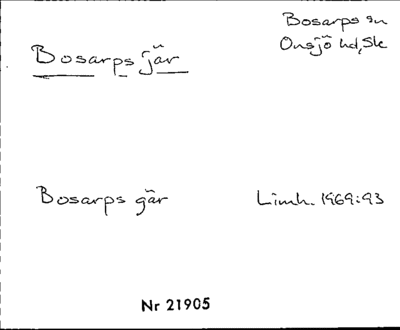 Bosarps sn
Onsjö hd, Sk
Bosarps jär
Bosarps gär
Limh. 1969:93
Nr 21905